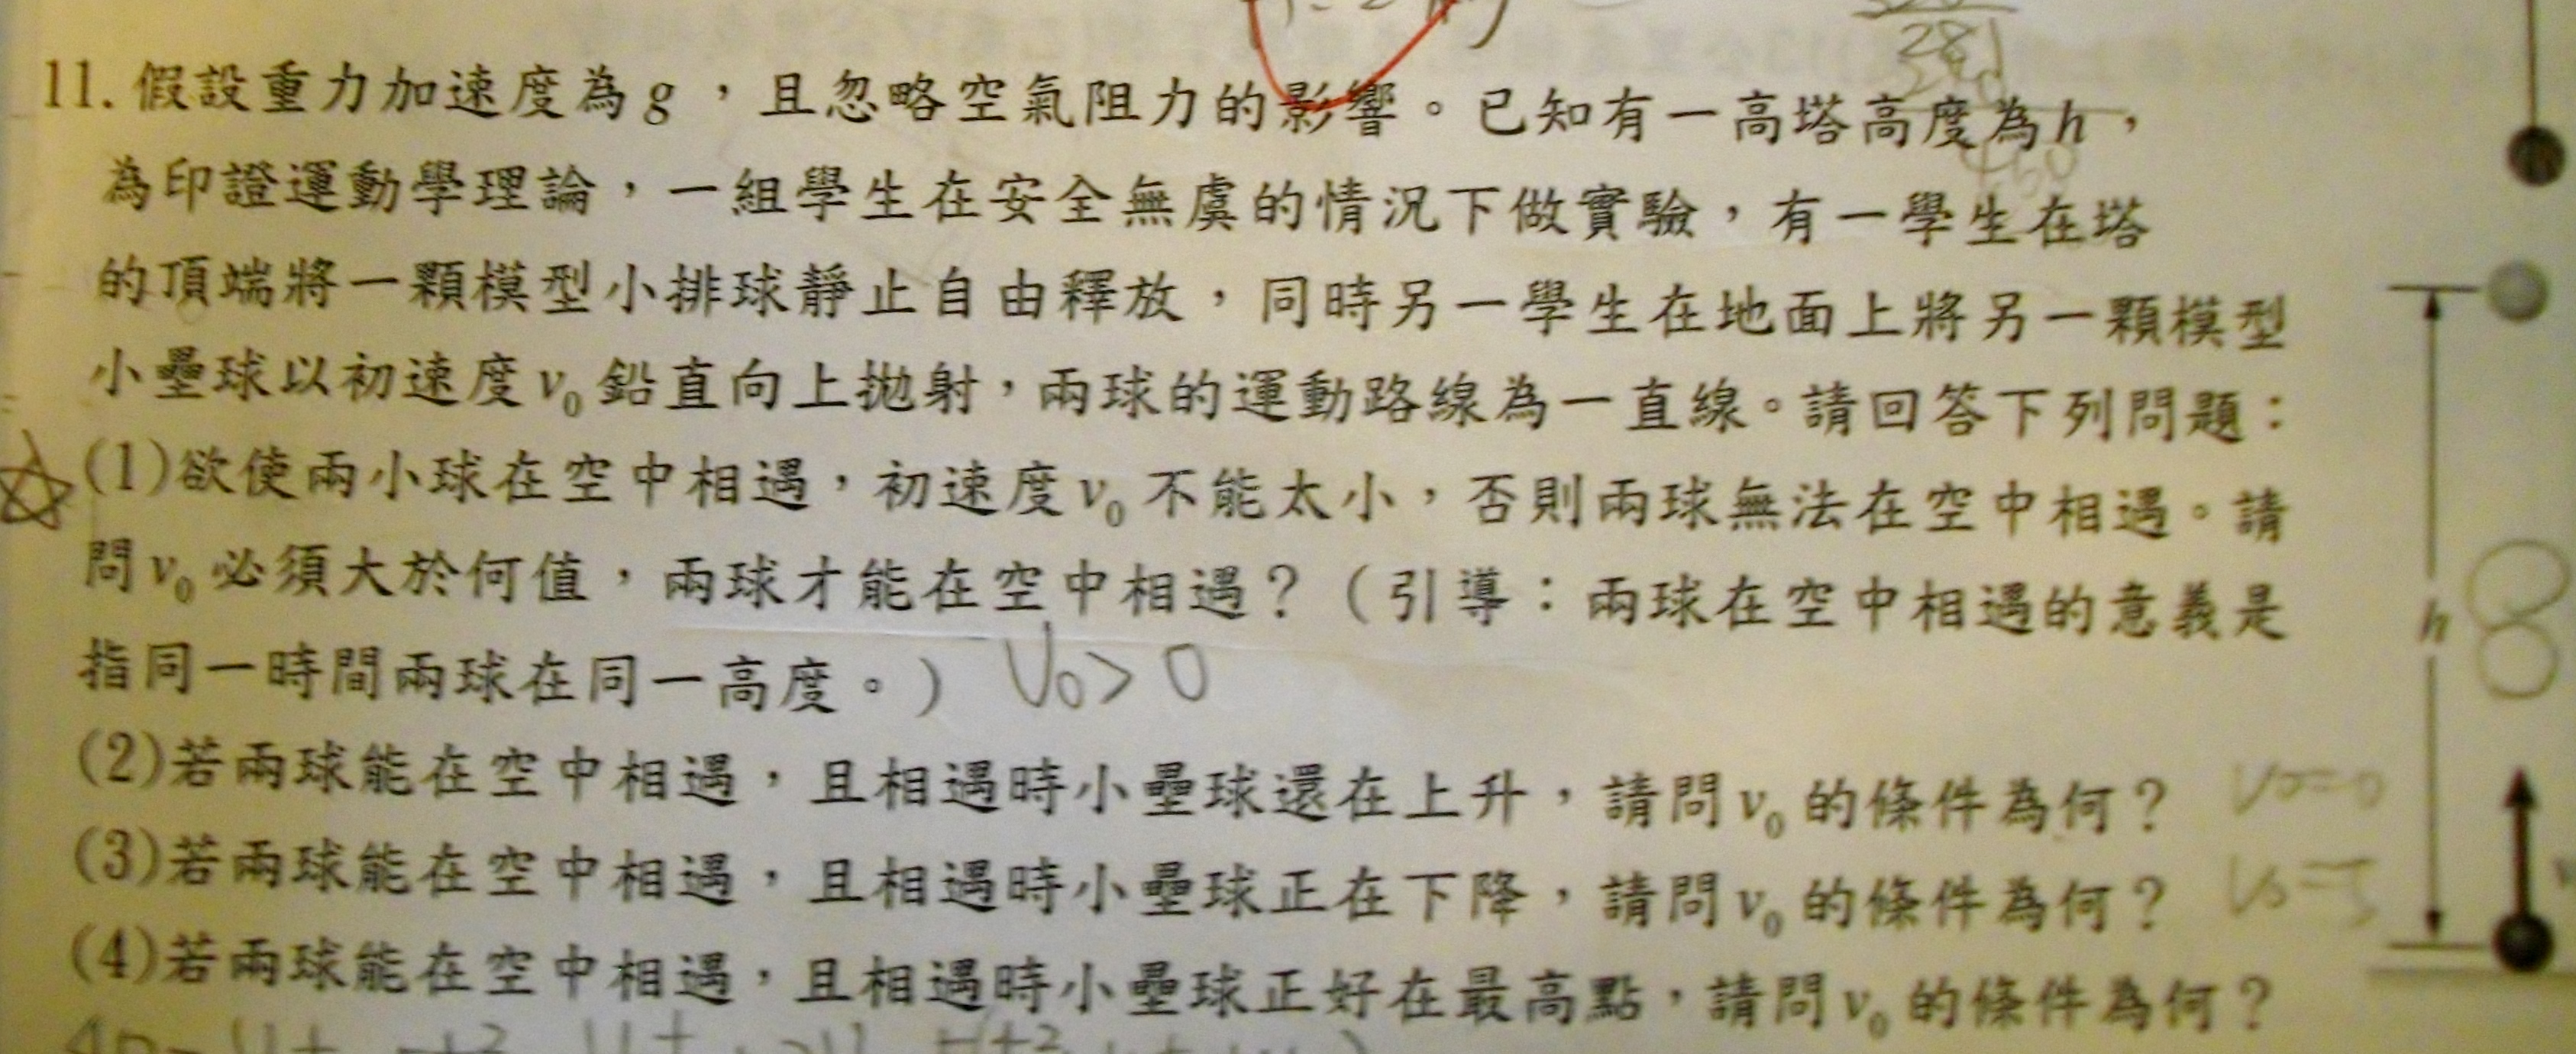 11. 假設重力加速度為g,且忽略空氣阻力的影響。已知有一高塔高度為h,
為印證運動學理論,一組學生在安全無虞的情況下做實驗,有一學生在塔
的頂端將一顆模型小排球靜止自由釋放,同時另一學生在地面上將另一顆模型
小壘球以初速度v₀鉛直向上拋射,兩球的運動路線為一直線。請回答下列問題:
(1)欲使兩小球在空中相遇,初速度v₀不能太小,否則兩球無法在空中相遇。請
問v₀必須大於何值,兩球才能在空中相遇?(引導:兩球在空中相遇的意義是
指同一時間兩球在同一高度。) V₀>0
(2)若兩球能在空中相遇,且相遇時小壘球還在上升,請問v₀的條件為何? V₀=0
(3)若兩球能在空中相遇,且相遇時小壘球正在下降,請問v₀的條件為何?
(4)若兩球能在空中相遇,且相遇時小壘球正好在最高點,請問v₀的條件為何?
h